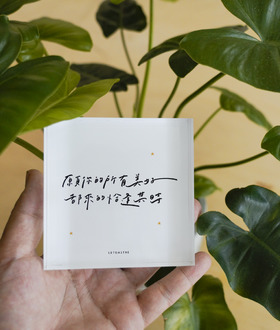 願你的所有美好
都來的恰逢其時